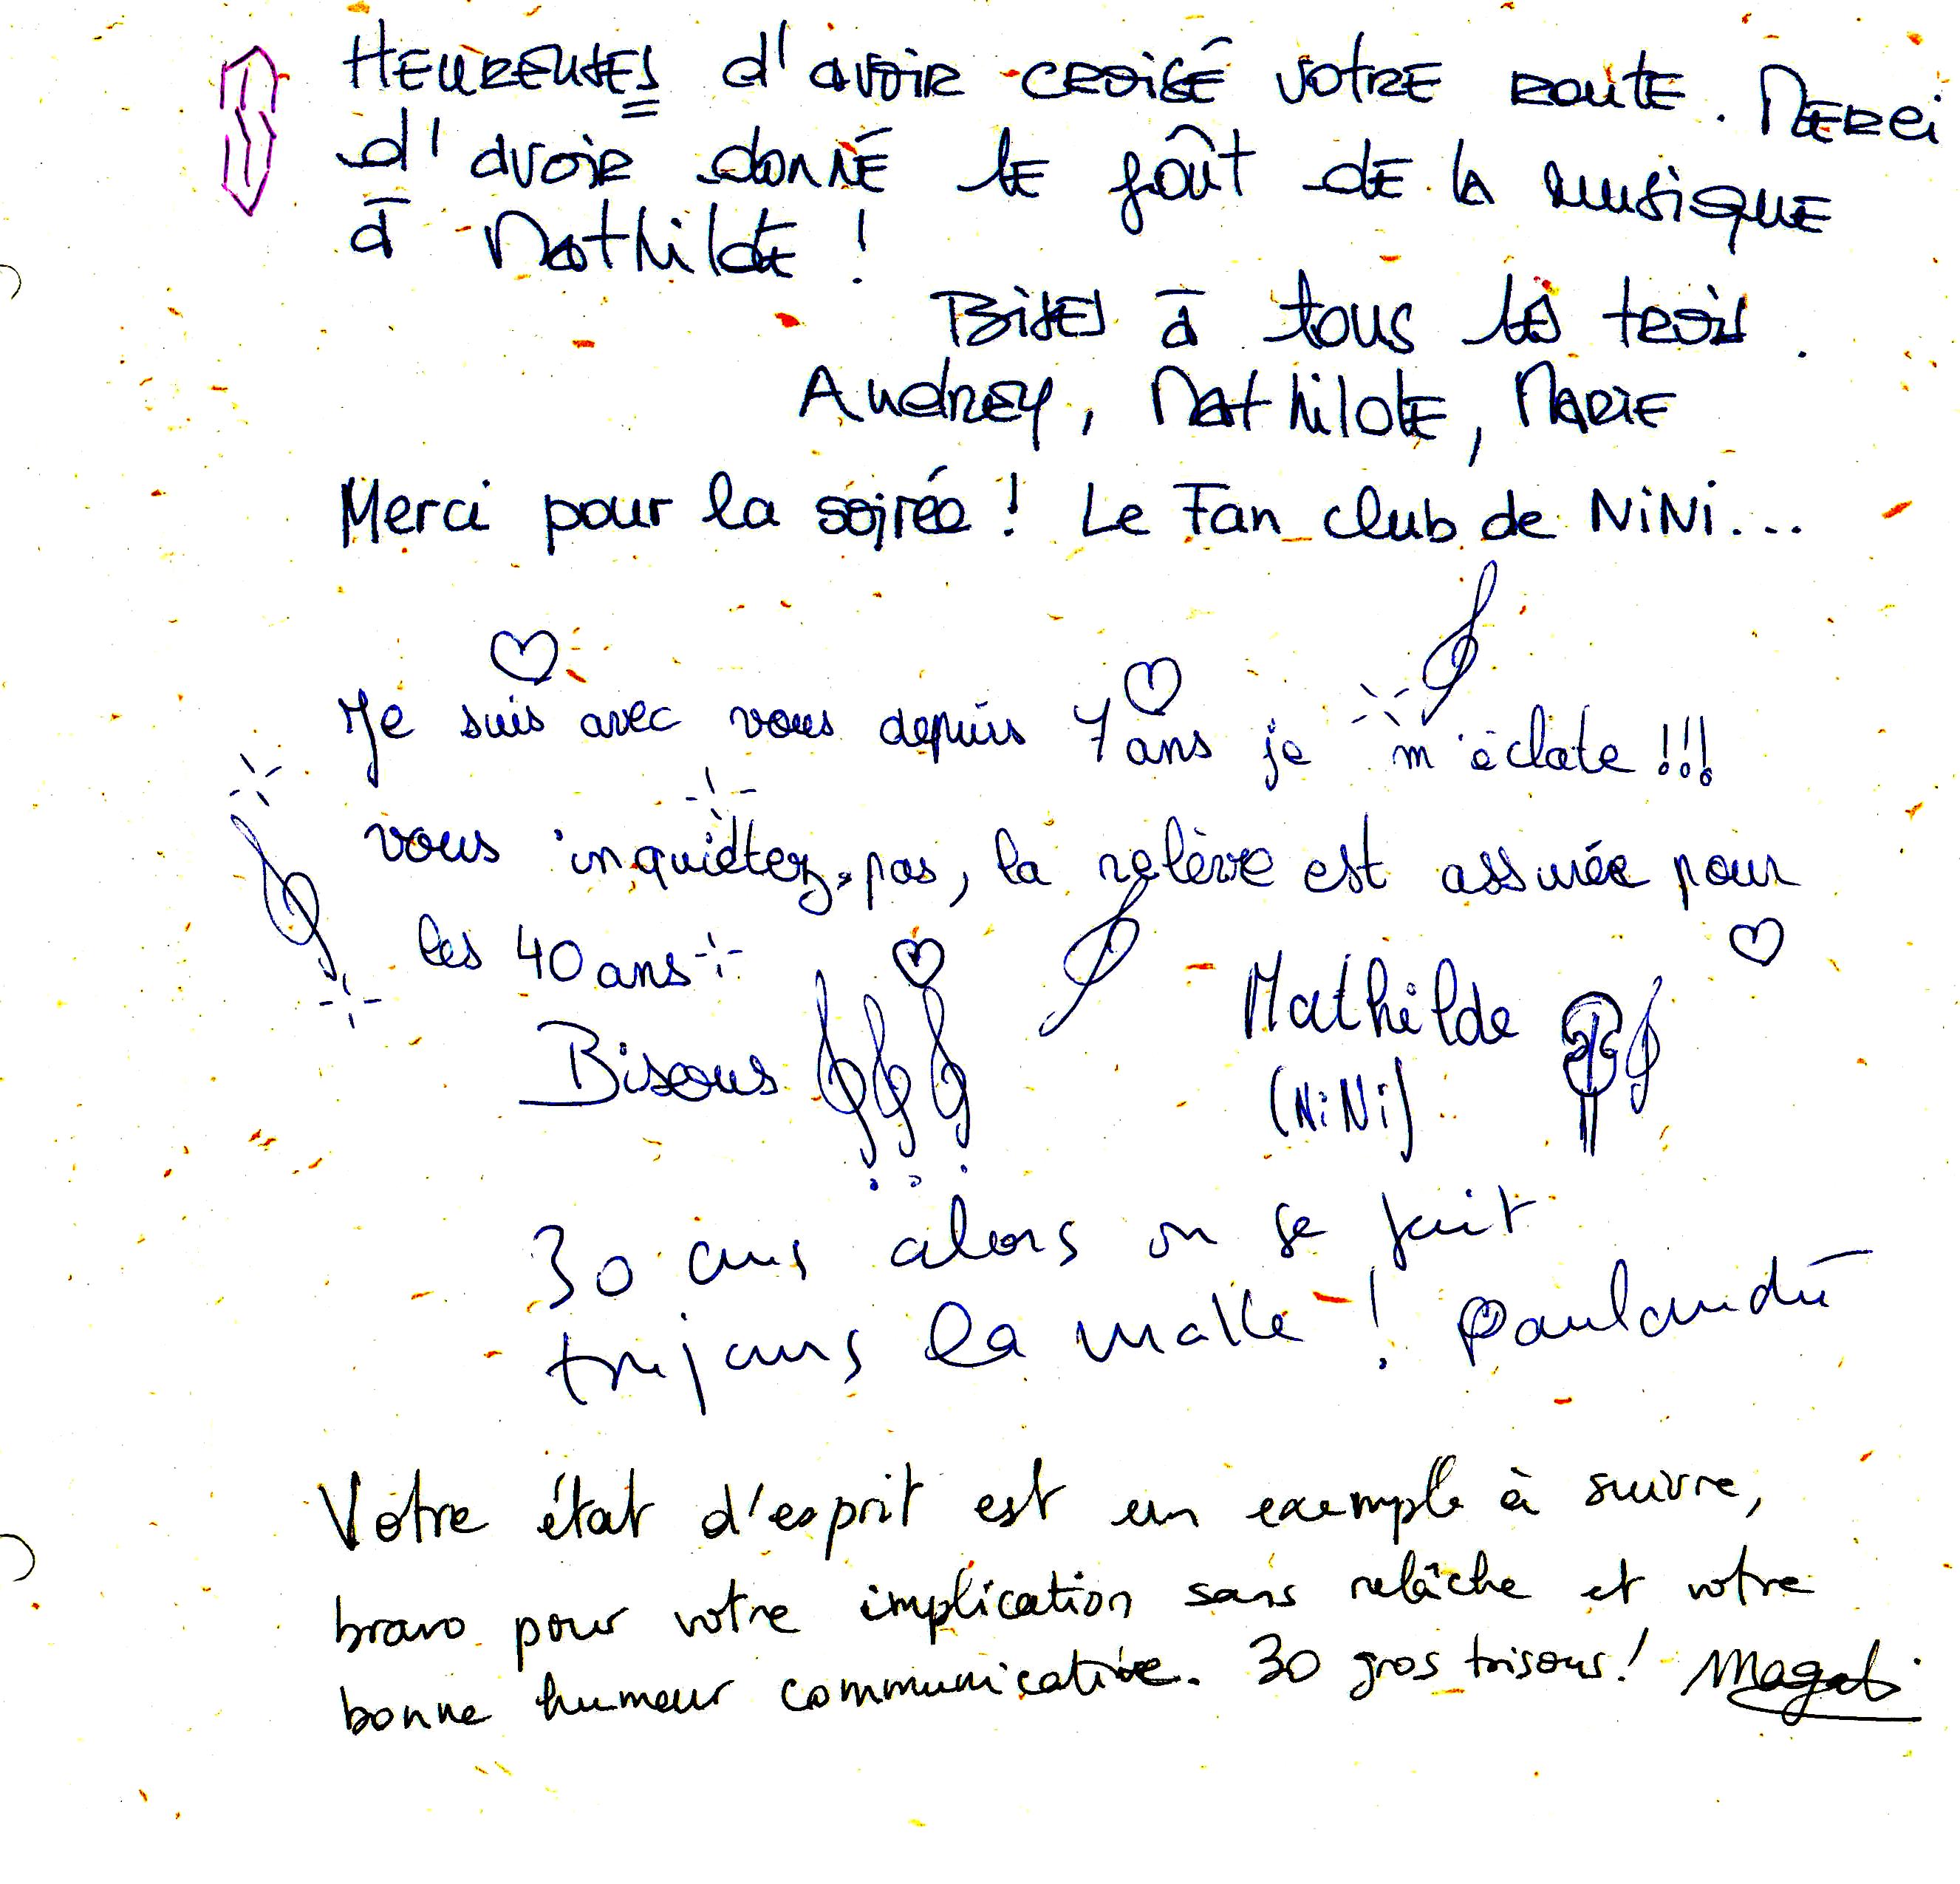 HEUREUSES d'avoir CROISÉ VOTRE ROUTE. MERCI
d'avoir donné le goût de la musique
à Mathilde !
Bises à tous les trois.
Audrey, Mathilde, Marie
Merci pour la soirée ! Le Fan club de NiNi...
Je suis avec vous depuis 7 ans je m'éclate !!!
vous inquiétez pas, la relève est assurée pour
les 40 ans
Bisous
Mathilde
(NiNi)
30 ans alors on se fait
toujours la malle !
Votre état d'esprit est un exemple à suivre,
bravo pour votre implication sans relâche et votre
bonne humeur communicative. 30 gros bisous ! Magali